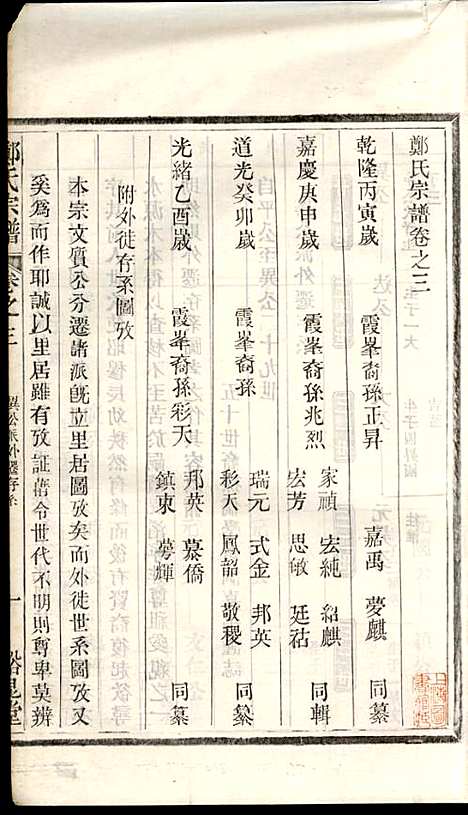 鄭氏宗譜卷之三
乾隆丙寅歲 霞峯裔孫正昇 嘉禹 夢麒 同纂
嘉慶庚申歲 霞峯裔孫兆烈 家禎 宏純 紹麒
宏芳 思敏 廷祜 同輯
道光癸卯歲 霞峯裔孫 瑞元 式金 邦英
彩天 鳳韶 敬稷 同纂
光緒乙酉歲 霞峯裔孫彩天 邦英 慕僑
鎮東 夢輝 同纂
附外徒存系圖攷
本宗文質公分遷諸派旣立里居圖攷矣而外徒世系圖攷又
奚為而作耶誠以里居雖有攷証蒨令世代不明則尊卑莫辨
鄭氏宗譜 卷之三 異公派外遷存系 一